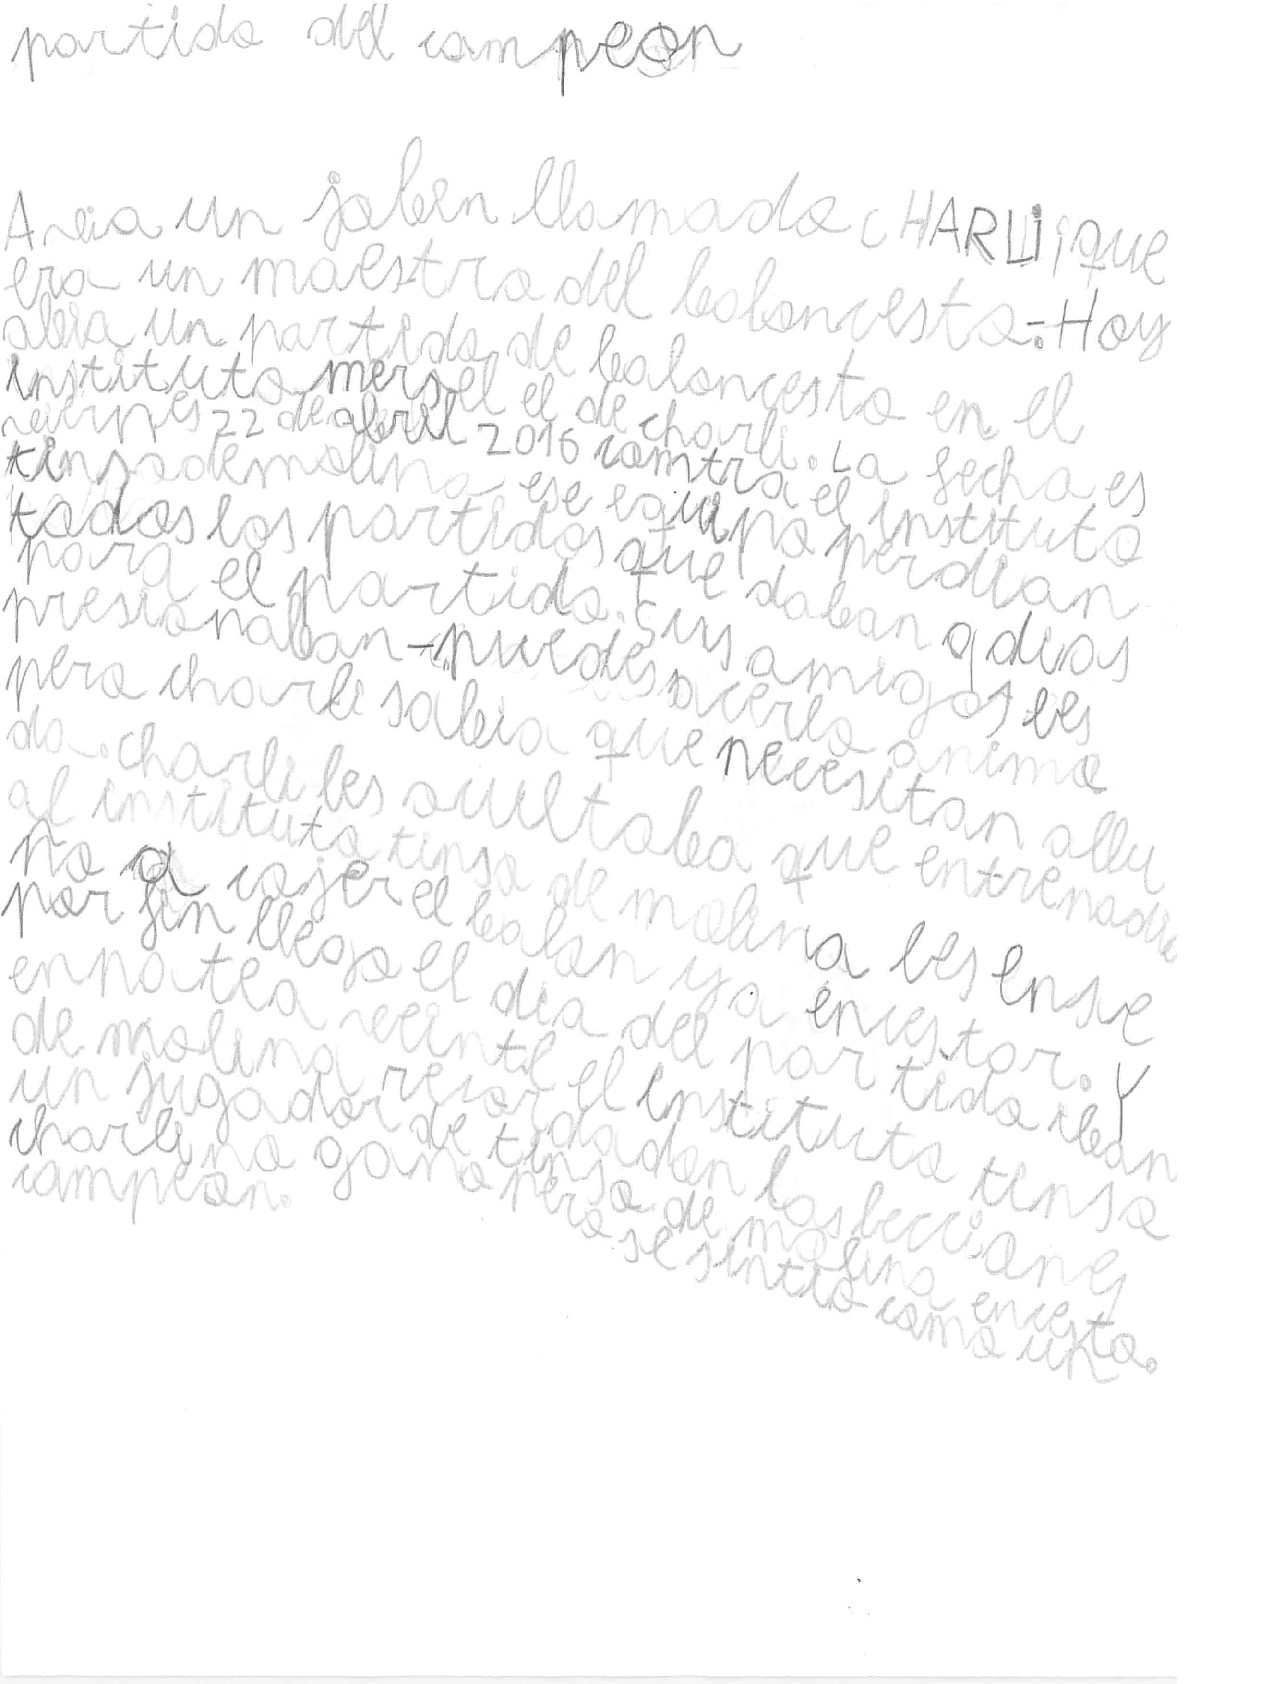 partido del campeon
Avia un joben llamado CHARLi, que
era un maestro del baloncesto:-Hoy
abia un partido de baloncesto en el
instituto mersel el de charli. La fecha es
viernes 22 de abril 2016 comtra el instituto
tinsa de molina ese equipo perdian
todos los partidos que daban qdias
para el partido. Sus amigos les
presionaban-puedes acerlo animo
pero charli sabia que necesitan allu
da. charli les ocultaba que entrenadu
al instituto tinsa de molina les ense
ño a cojer el balon y a encestar. Y
por fin llego el dia del partido iban
enpate a veinte el instituto tinsa
de molina recordadon las lecciones
un jugador de tinsa de molina encesto.
charli no gano pero se sintio como un
campeon.